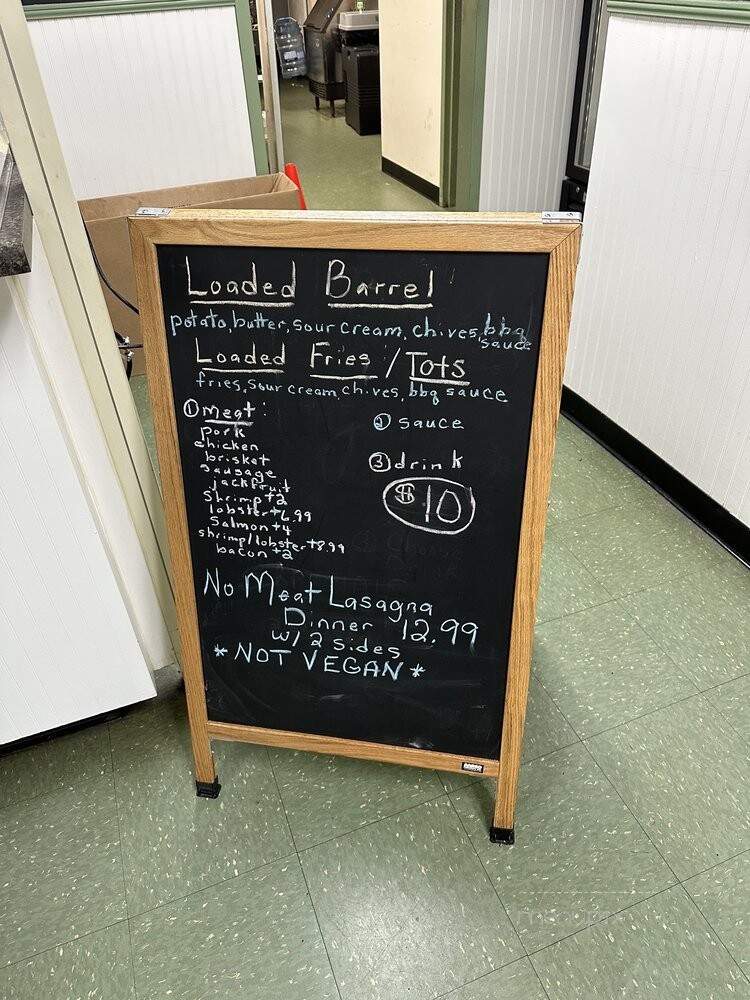 Loaded Barrel
potato, butter, sour cream, chives, bbq
sauce
Loaded Fries / Tots
fries, sour cream, chives, bbq sauce
① meat:
pork
chicken
brisket
sausage
jackfruit
Shrimp +2
lobster +6.99
Salmon +4
shrimp/lobster +8.99
bacon +2
② sauce
③ drink
$10
No Meat Lasagna
Dinner 12.99
w/ 2 sides
*NOT VEGAN*